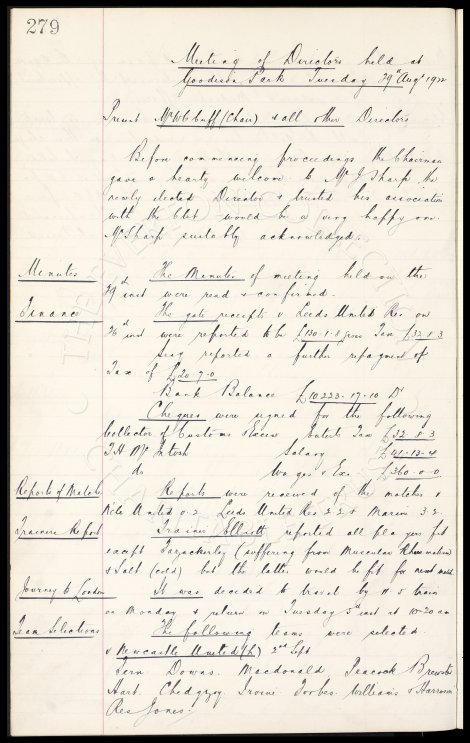 279
Meeting of Directors held at
Goodison Park Tuesday 29th Augt 1922
Present Mr W C Cuff (Chair) & all other Directors
Before commencing proceedings the Chairman
gave a hearty welcome to Mr J Sharp the
newly elected Director & trusted his association
with the club would be a very happy one.
Mr Sharp suitably acknowledged.
Minutes
The Minutes of meeting held on the
inst were read & confirmed.
Finance
The gate receipts v Leeds United Res on
26th inst were reported to be £130.1.8 gross Tax £32.8.3
Secy reported a further repayment of
Tax of £20.7.0
Bank Balance £10223.17.10 Dr
Cheques were signed for the following
Collector of Customs & Excise Entert Tax £32.8.3
T.H. McIntosh Salary £41.13.4
do Wages & Exs £360.0.0
Reports of Matches
Reports were received of the matches v
Newcastle United 0.2 Leeds United Res 2.2 & Marine 3.2.
Trainers Report
Trainer Elliott reported all players fit
except (suffering from Muscular Rheumatism
& Salt (cold) but the latter would be fit for next match
Journey to London
It was decided to travel by 11.5 train
on Monday & return on Tuesday 5th inst at 10.20 am
Team Selections
The following teams were selected.
v Newcastle United (h) 2nd Sept
Fern. Downs. Macdonald Peacock Brewster
Hart. Chedgzoy. Irvine. Forbes. Williams & Harrison
Res Jones.